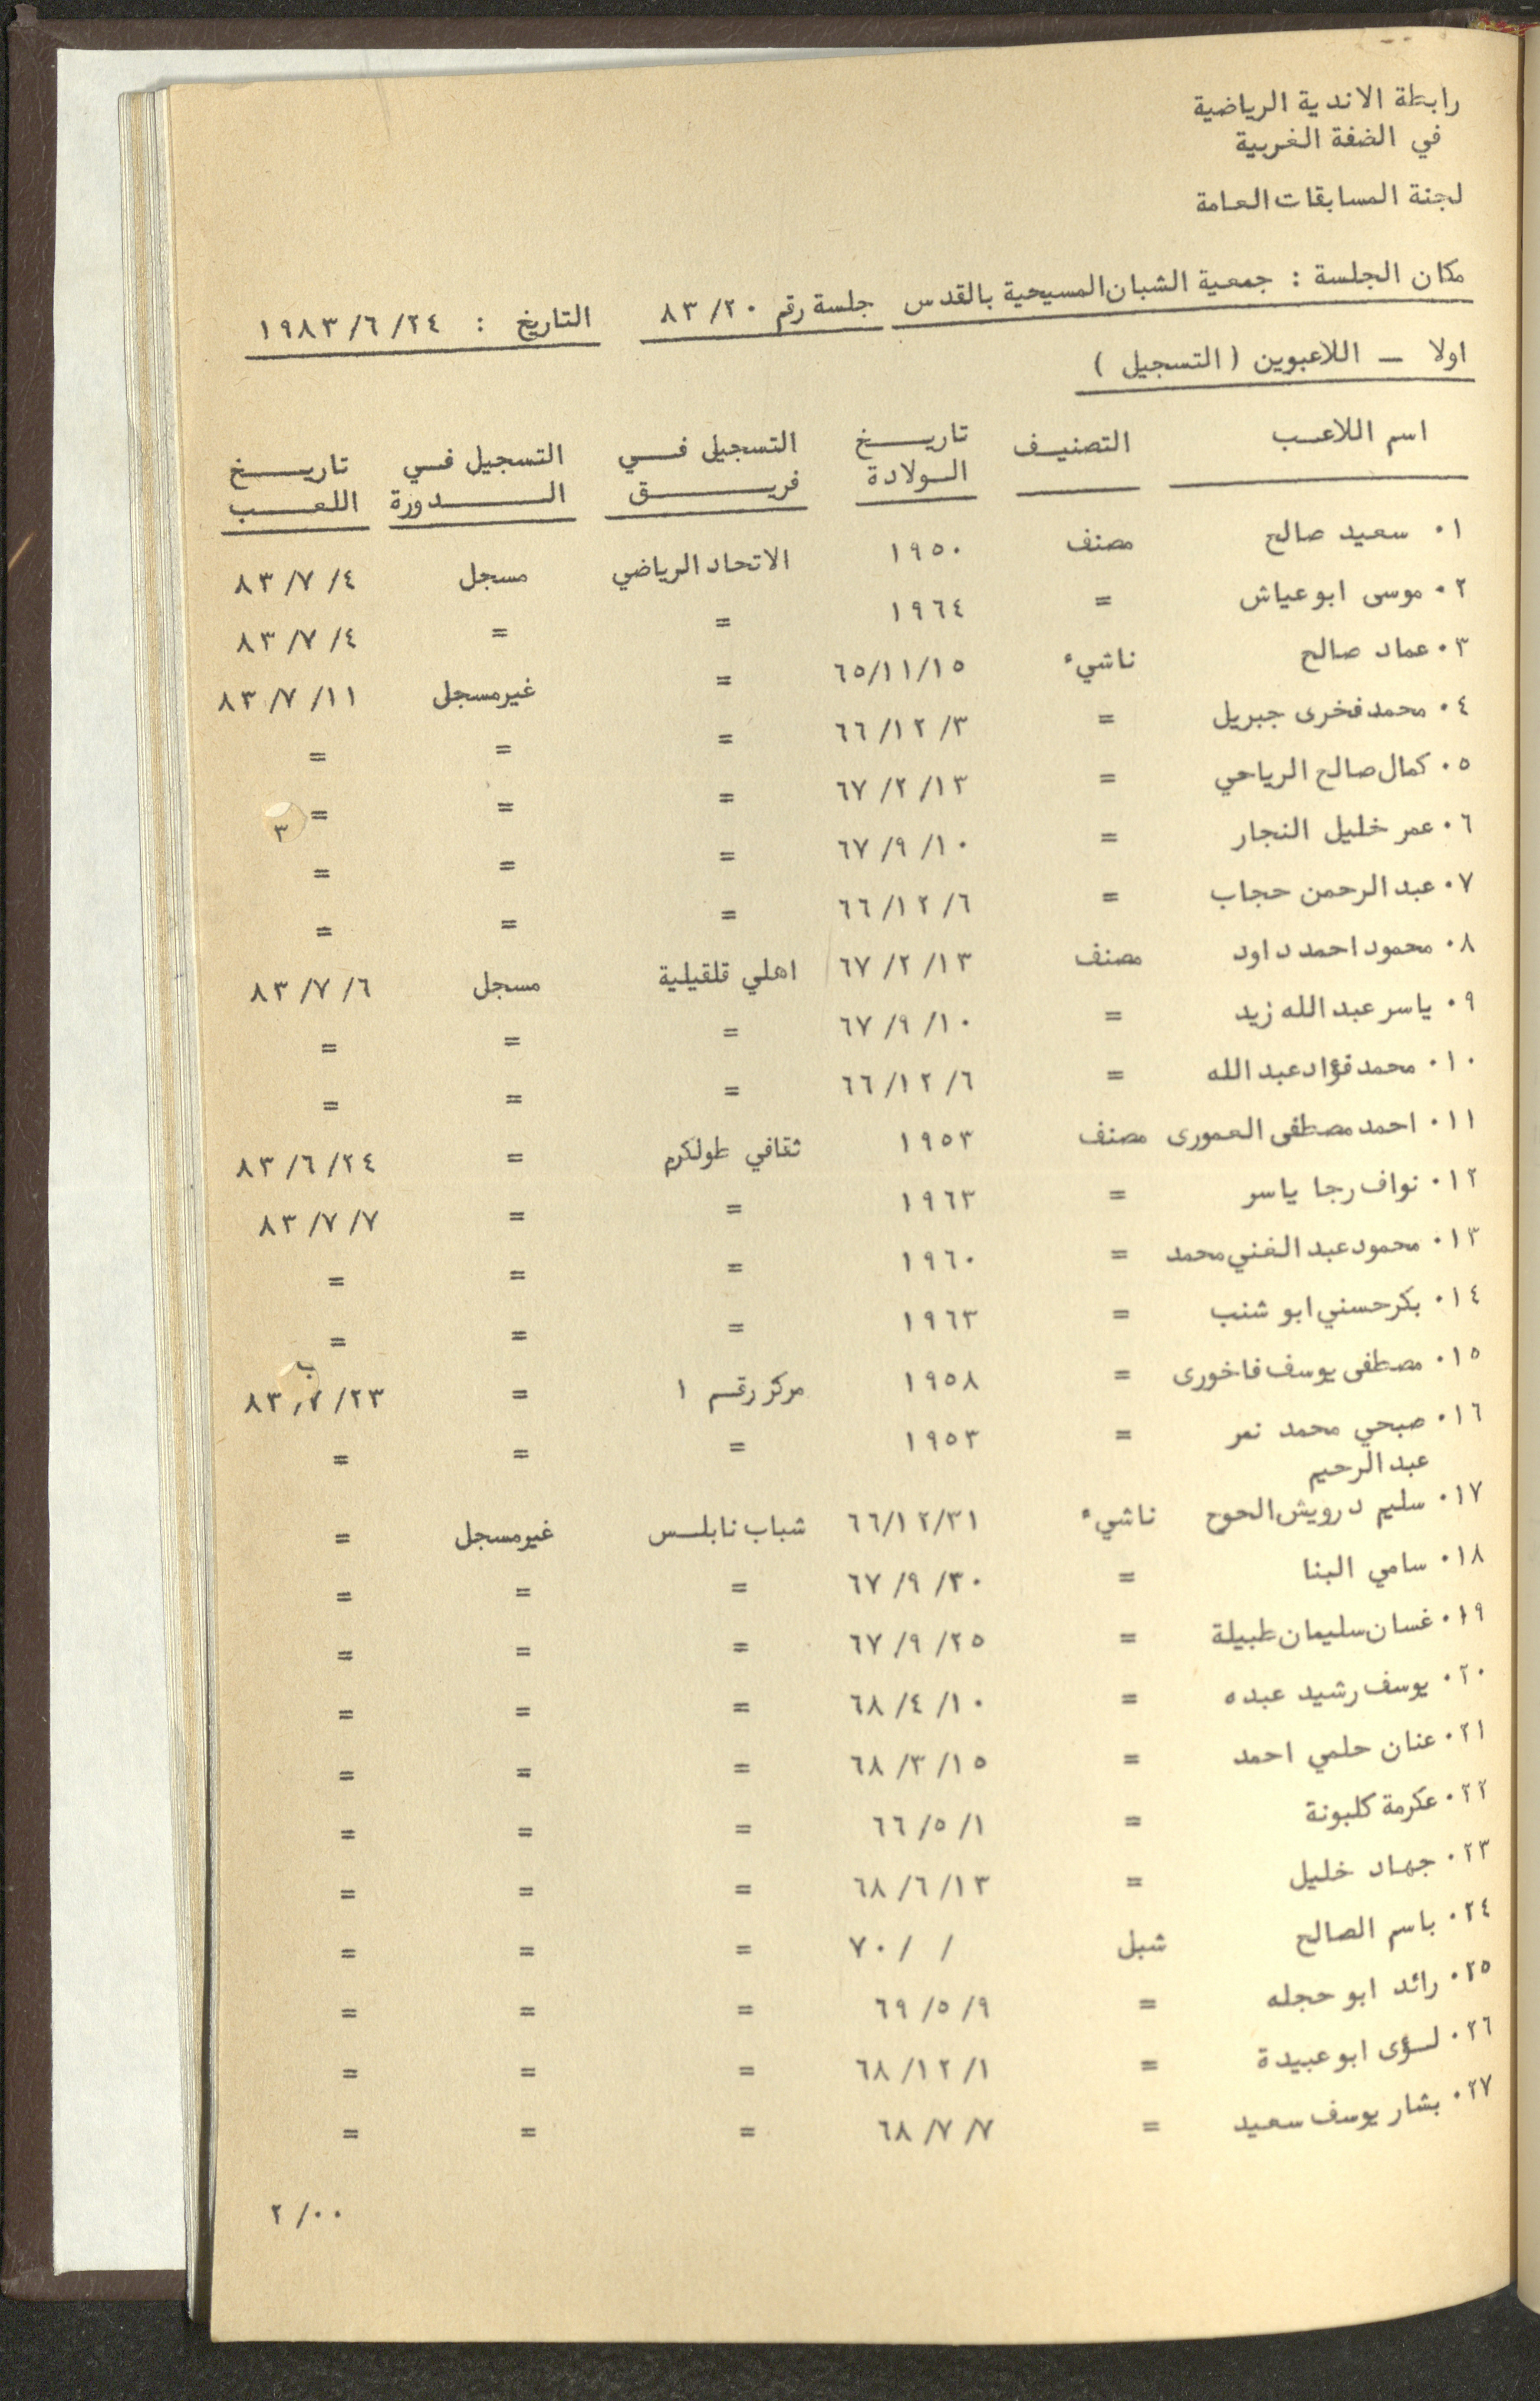 رابطة الاندية الرياضية
في الضفة الغربية
لجنة المسابقات العامة
مكان الجلسة : جمعية الشبان المسيحية بالقدس جلسة رقم ٨٣/٢٠ التاريخ : ١٩٨٣/٦/٢٤
اولا – اللاعبوين ( التسجيل )
اسم اللاعب التصنيف تاريخ الولادة التسجيل في فريق التسجيل في الدورة تاريخ اللعب
٠١ سعيد صالح مصنف ١٩٥٠ الاتحاد الرياضي مسجل ٨٣/٧/٤
٠٢ موسى ابوعياش = ١٩٦٤ = = ٨٣/٧/٤
٠٣ عماد صالح ناشيء ٦٥/١١/١٥ = غيرمسجل ٨٣/٧/١١
٠٤ محمد فخرى جبريل = ٦٦/١٢/٣ = = =
٠٥ كمال صالح الرياحي = ٦٧/٢/١٣ = = =
٣
٠٦ عمر خليل النجار = ٦٧/٩/١٠ = = =
٠٧ عبد الرحمن حجاب = ٦٦/١٢/٦ = = =
٠٨ محمود احمد داود مصنف ٦٧/٢/١٣ اهلي قلقيلية مسجل ٨٣/٧/٦
٠٩ ياسر عبد الله زيد = ٦٧/٩/١٠ = = =
٠١٠ محمد فؤاد عبد الله = ٦٦/١٢/٦ = = =
٠١١ احمد مصطفى العمورى مصنف ١٩٥٣ ثقافي طولكرم = ٨٣/٦/٢٤
٠١٢ نواف رجا ياسر = ١٩٦٣ = = ٨٣/٧/٧
٠١٣ محمود عبد الغني محمد = ١٩٦٠ = = =
٠١٤ بكر حسني ابو شنب = ١٩٦٣ = = =
٠١٥ مصطفى يوسف فاخورى = ١٩٥٨ مركز رقم ١ = ٨٣/٧/٢٣
٠١٦ صبحي محمد نمر = ١٩٥٣ = = =
عبد الرحيم
٠١٧ سليم درويش الحوح ناشيء ٦٦/١٢/٣١ شباب نابلس غيرمسجل =
٠١٨ سامي البنا = ٦٧/٩/٣٠ = = =
٠١٩ غسان سليمان طبيلة = ٦٧/٩/٢٥ = = =
٠٢٠ يوسف رشيد عبده = ٦٨/٤/١٠ = = =
٠٢١ عنان حلمي احمد = ٦٨/٣/١٥ = = =
٠٢٢ عكرمة كلبونة = ٦٦/٥/١ = = =
٠٢٣ جهاد خليل = ٦٨/٦/١٣ = = =
٠٢٤ باسم الصالح شبل ٧٠/ / = = =
٠٢٥ رائد ابو حجله = ٦٩/٥/٩ = = =
٠٢٦ لؤى ابوعبيدة = ٦٨/١٢/١ = = =
٠٢٧ بشار يوسف سعيد = ٦٨/٧/٧ = = =
٢/٠٠